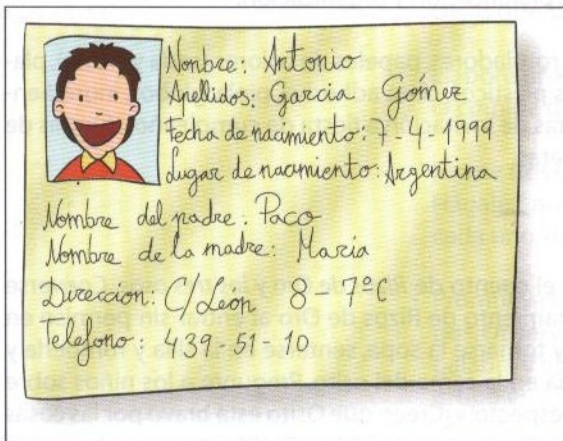 Nombre: Antonio
Apellidos: Garcia Gómez
Fecha de nacimiento: 7-4-1999
Lugar de nacimiento: Argentina
Nombre del padre: Paco
Nombre de la madre: Maria
Direccion: C/León 8-7ºC
Telefono: 439-51-10